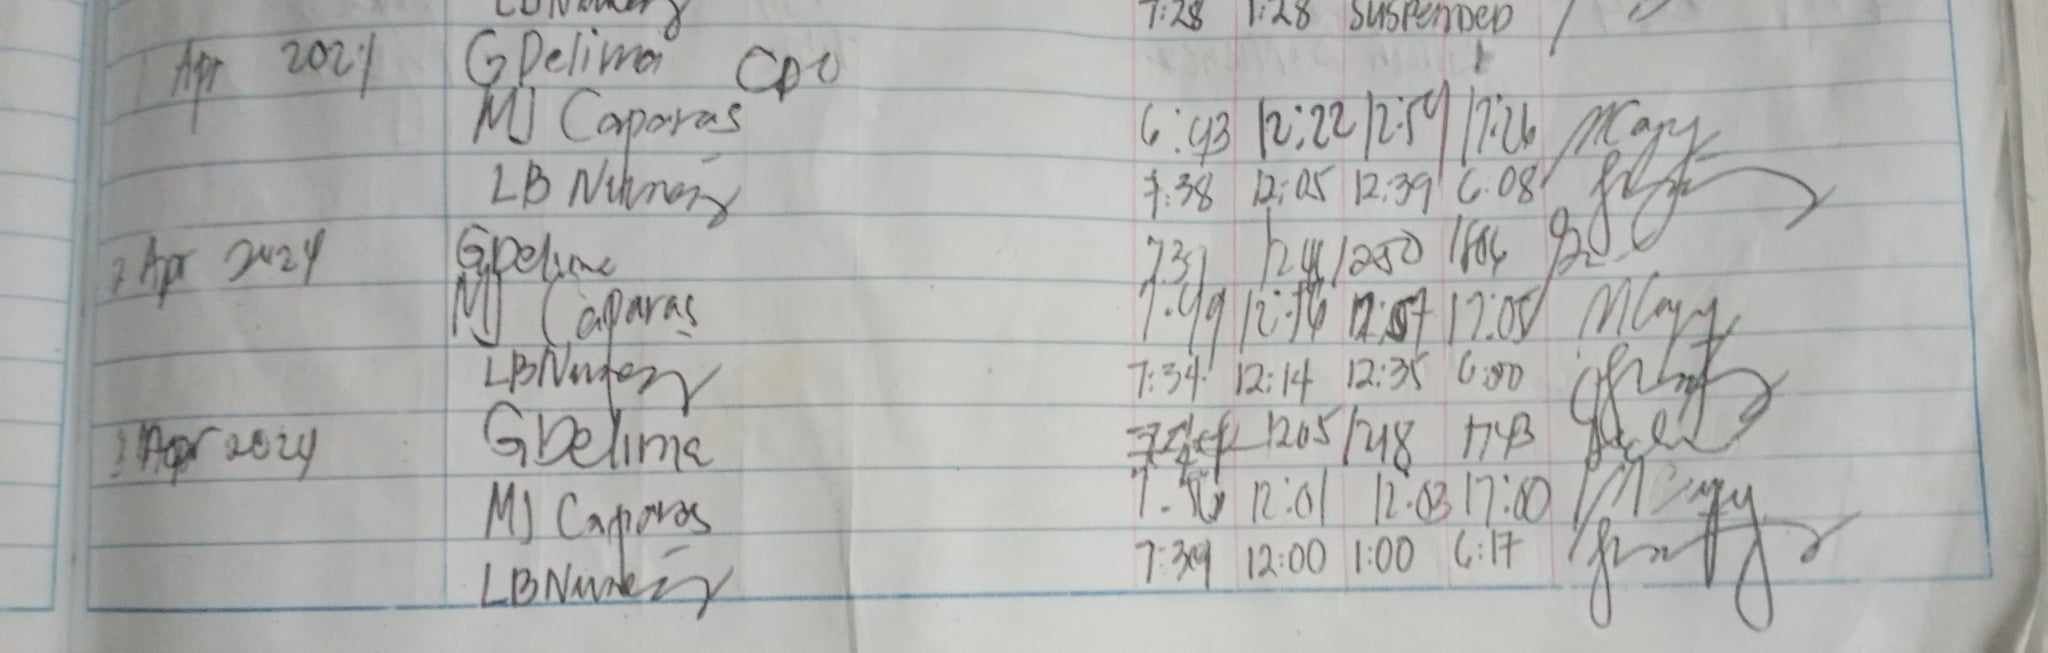 7:28 1:28 SUSPENDED
Apr 2024 GDelima CDO
MJ Caparas 6:43 12:22 12:54 17:26
LB Nunez 7:38 12:05 12:39 6:08
Apr 2024 GDelima 1250
MJ Caparas 7:49 12:57 17:05
LBNunez 7:34 12:14 12:35 6:00
Apr 2024 GDelima 1205 1218 1743
MJ Caparas 12:01 12:03 17:00
LBNunez 7:39 12:00 1:00 6:17